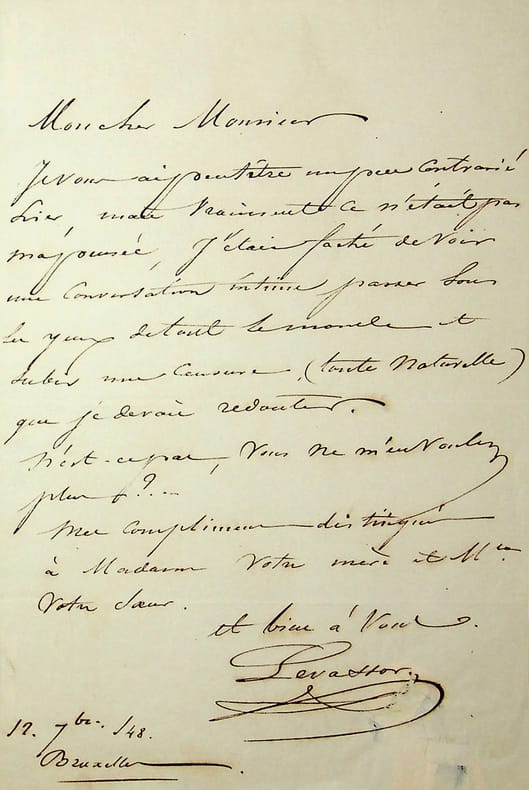 Mon cher Monsieur
Je vous ai peut être un peu contrarié
hier mais vraiment ce n'était pas
ma pensée, j'étais faché de voir
une conversation intime passer sous
les yeux de tout le monde et
subir une censure, (toute naturelle)
que je devais redouter.
N'est-ce pas, vous ne m'en voulez
plus ?...
Mes compliments distingués
à Madame votre mère et Mme
votre sœur.
et bien à vous.
Levassor.
12. 7bre. /48.
Bruxelles